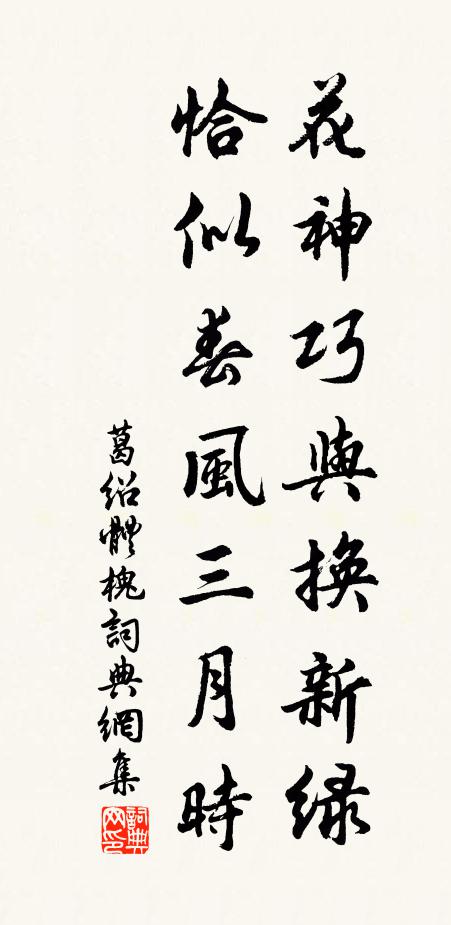 花神巧與換新緑
恰似春風三月時
葛紹體槐詞典網集
詞典网印